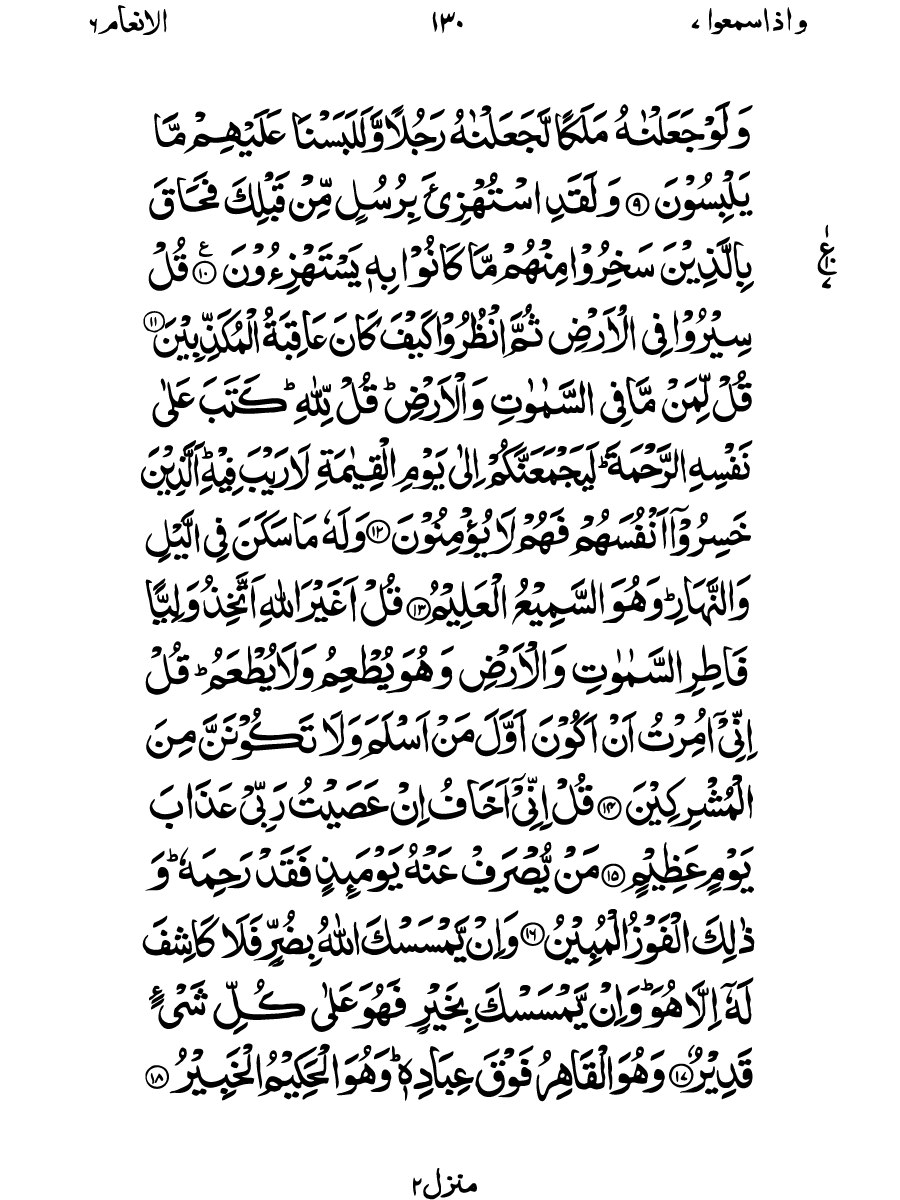 واذاسمعوا ۷
۱۳۰
الانعام ۶
وَ لَوْ جَعَلْنٰهُ مَلَكًا لَّجَعَلْنٰهُ رَجُلًا وَّ لَلَبَسْنَا عَلَیْهِمْ مَّا
یَلْبِسُوْنَ ۹ وَ لَقَدِ اسْتُهْزِئَ بِرُسُلٍ مِّنْ قَبْلِكَ فَحَاقَ
بِالَّذِیْنَ سَخِرُوْا مِنْهُمْ مَّا كَانُوْا بِهٖ یَسْتَهْزِءُوْنَ ۱۰ ع قُلْ
ع ۱ ۱۰ ۷
سِیْرُوْا فِی الْاَرْضِ ثُمَّ انْظُرُوْا كَیْفَ كَانَ عَاقِبَةُ الْمُكَذِّبِیْنَ ۱۱
قُلْ لِّمَنْ مَّا فِی السَّمٰوٰتِ وَ الْاَرْضِؕ قُلْ لِّلّٰهِؕ كَتَبَ عَلٰی
نَفْسِهِ الرَّحْمَةَؕ لَیَجْمَعَنَّكُمْ اِلٰی یَوْمِ الْقِیٰمَةِ لَا رَیْبَ فِیْهِؕ اَلَّذِیْنَ
خَسِرُوْۤا اَنْفُسَهُمْ فَهُمْ لَا یُؤْمِنُوْنَ ۱۲ وَ لَهٗ مَا سَكَنَ فِی الَّیْلِ
وَ النَّهَارِؕ وَ هُوَ السَّمِیْعُ الْعَلِیْمُ ۱۳ قُلْ اَغَیْرَ اللّٰهِ اَتَّخِذُ وَلِیًّا
فَاطِرِ السَّمٰوٰتِ وَ الْاَرْضِ وَ هُوَ یُطْعِمُ وَ لَا یُطْعَمُؕ قُلْ
اِنِّیْۤ اُمِرْتُ اَنْ اَكُوْنَ اَوَّلَ مَنْ اَسْلَمَ وَ لَا تَكُوْنَنَّ مِنَ
الْمُشْرِكِیْنَ ۱۴ قُلْ اِنِّیْۤ اَخَافُ اِنْ عَصَیْتُ رَبِّیْ عَذَابَ
یَوْمٍ عَظِیْمٍ ۱۵ مَنْ یُّصْرَفْ عَنْهُ یَوْمَىِٕذٍ فَقَدْ رَحِمَهٗؕ وَ
ذٰلِكَ الْفَوْزُ الْمُبِیْنُ ۱۶ وَ اِنْ یَّمْسَسْكَ اللّٰهُ بِضُرٍّ فَلَا كَاشِفَ
لَهٗۤ اِلَّا هُوَؕ وَ اِنْ یَّمْسَسْكَ بِخَیْرٍ فَهُوَ عَلٰی كُلِّ شَیْءٍ
قَدِیْرٌ ۱۷ وَ هُوَ الْقَاهِرُ فَوْقَ عِبَادِهٖؕ وَ هُوَ الْحَكِیْمُ الْخَبِیْرُ ۱۸
منزل۲